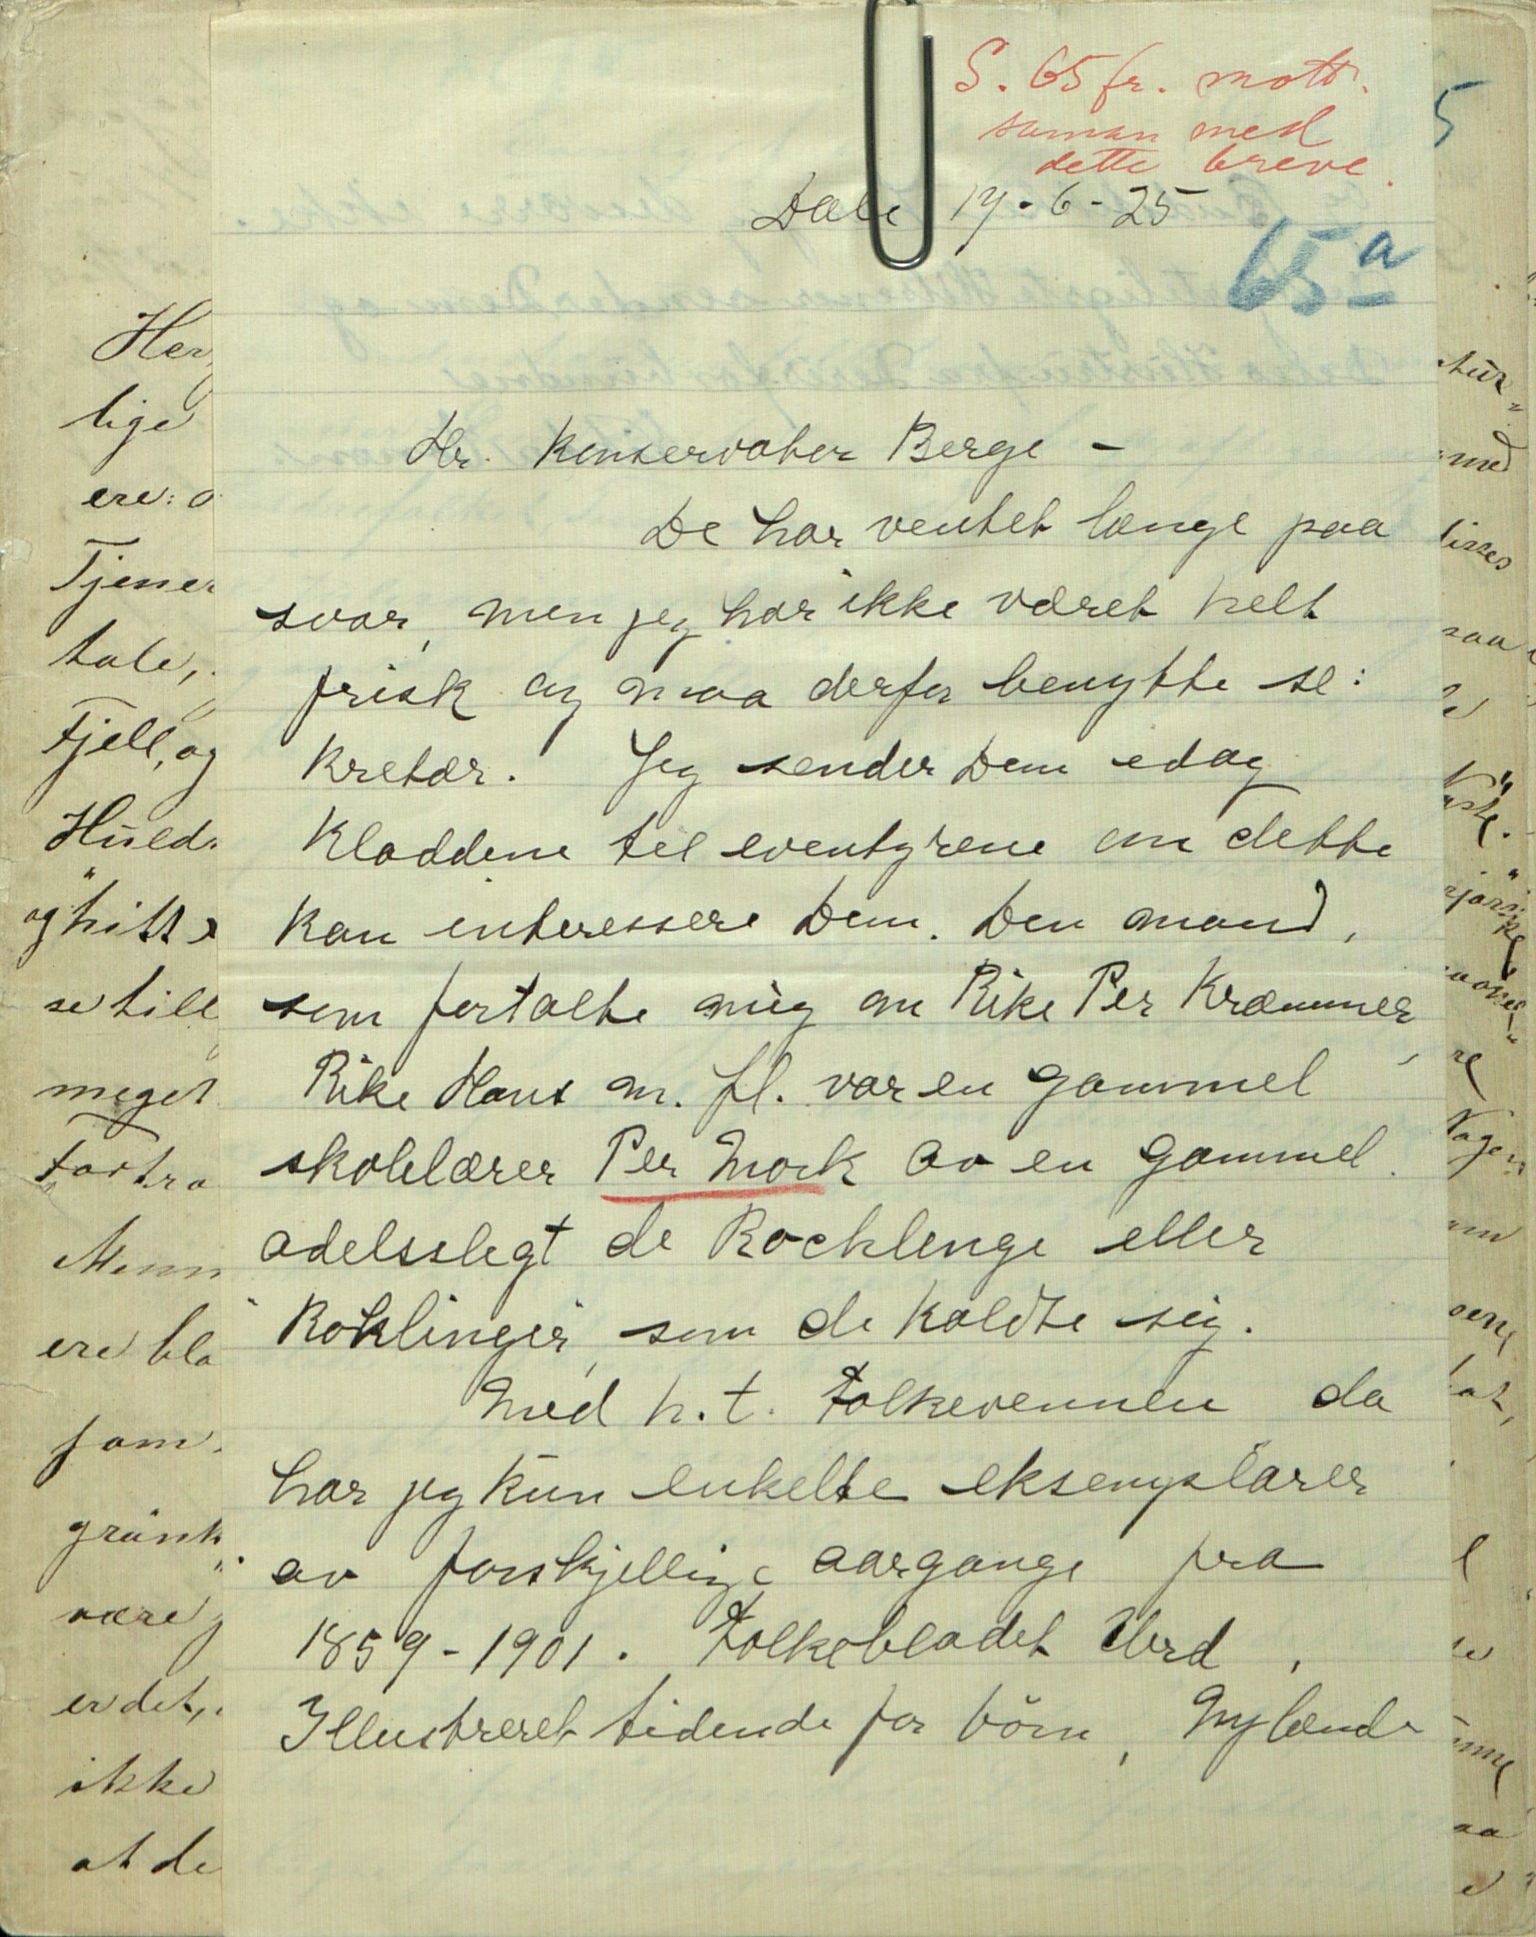 S. 65 fr. mott.
saman med
dette breve.
5
Dale 17-6-25
65a
Hr. Konservator Berge -
De har ventet længe paa
svar, men jeg har ikke været helt
frisk og maa derfor benytte se:
kretær. Jeg sender Dem idag
Kladdene til eventyrene om dette
kan interessere Dem. Den mand,
som fortalte mig om Rike Per Kræmmer,
Rike Hans m. fl. var en gammel
skolelærer Per Mork av en gammel
adelsslegt de Rocklenge eller
"Roklinger", som de kaldte sig.
Med h.t. Folkevennen da
har jeg kun enkelte eksemplarer
av forskjellige aargange fra
1859-1901. Folkebladet Urd,
Illustreret tidende for börn, Nylænde
Her
lige
ere: o
Tjener
tale,
Fjell, og
Huld
og hitt
se till
meget
Fortra
Menn
ere bla
fom
grank
være
er det,
ikke
at de
med
disses
saa